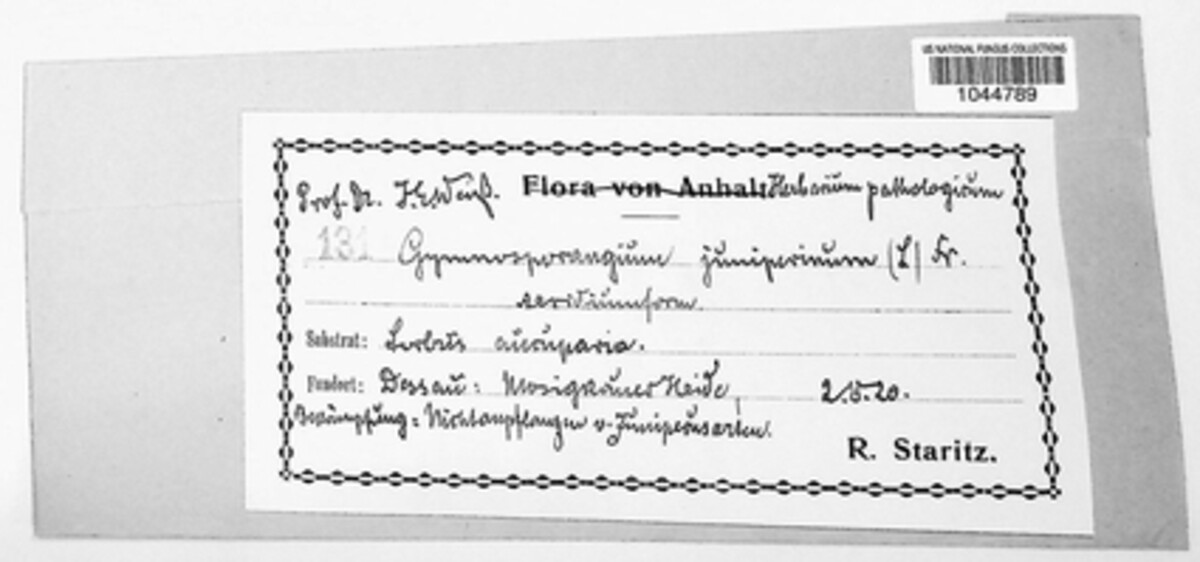 US NATIONAL FUNGUS COLLECTIONS
1044789
Prof. Dr. J. E. Weiß. Flora von Anhalt Herbarium pathologicum
131 Gymnosporangium juniperinum (L) Fr.
aecidiumform
Substrat: Sorbus aucuparia.
Fundort: Dessau: Mosigkauer Heide, 2.5.20.
Bekämpfung: Nichtanpflanzen v. Juniperusarten.
R. Staritz.